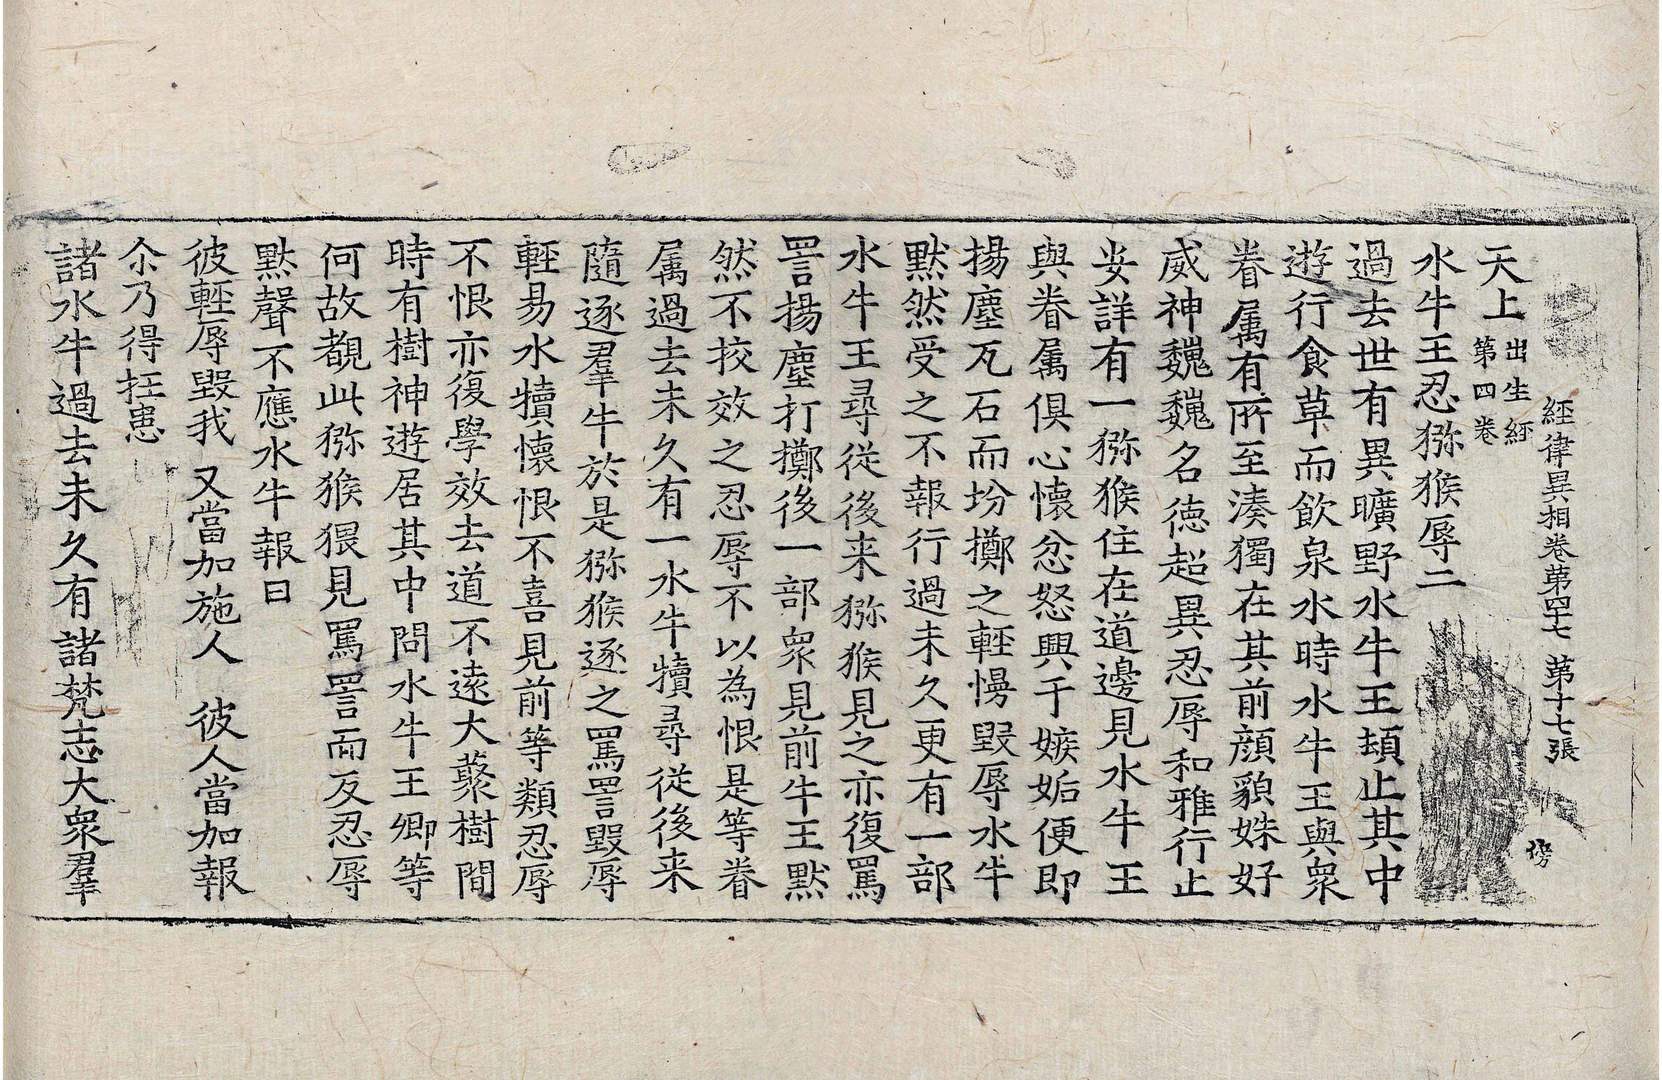 經律異相卷第四十七 第十七張 傍
天上 出生經第四卷
水牛王忍猕猴辱二
過去世有異曠野水牛王頓止其中
遊行食草而飲泉水時水牛王與衆
眷属有所至湊獨在其前顔貌姝好
威神巍巍名德超異忍辱和雅行止
安詳有一猕猴住在道邊見水牛王
與眷属俱心懷忿怒興于嫉妬便即
揚塵瓦石而坋擲之輕慢毀辱水牛
黙然受之不報行過未久更有一部
水牛王尋従後来猕猴見之亦復罵
詈揚塵打擲後一部衆見前牛王黙
然不挍效之忍辱不以為恨是等眷
属過去未久有一水牛犢尋従後来
隨逐羣牛於是猕猴逐之罵詈毀辱
輕易水犢懷恨不喜見前等類忍辱
不恨亦復學效去道不遠大藂樹間
時有樹神遊居其中問水牛王卿等
何故覩此猕猴猥見罵詈而反忍辱
黙聲不應水牛報曰
彼輕辱毀我 又當加施人 彼人當加報
尒乃得抂患
諸水牛過去未久有諸梵志大衆羣